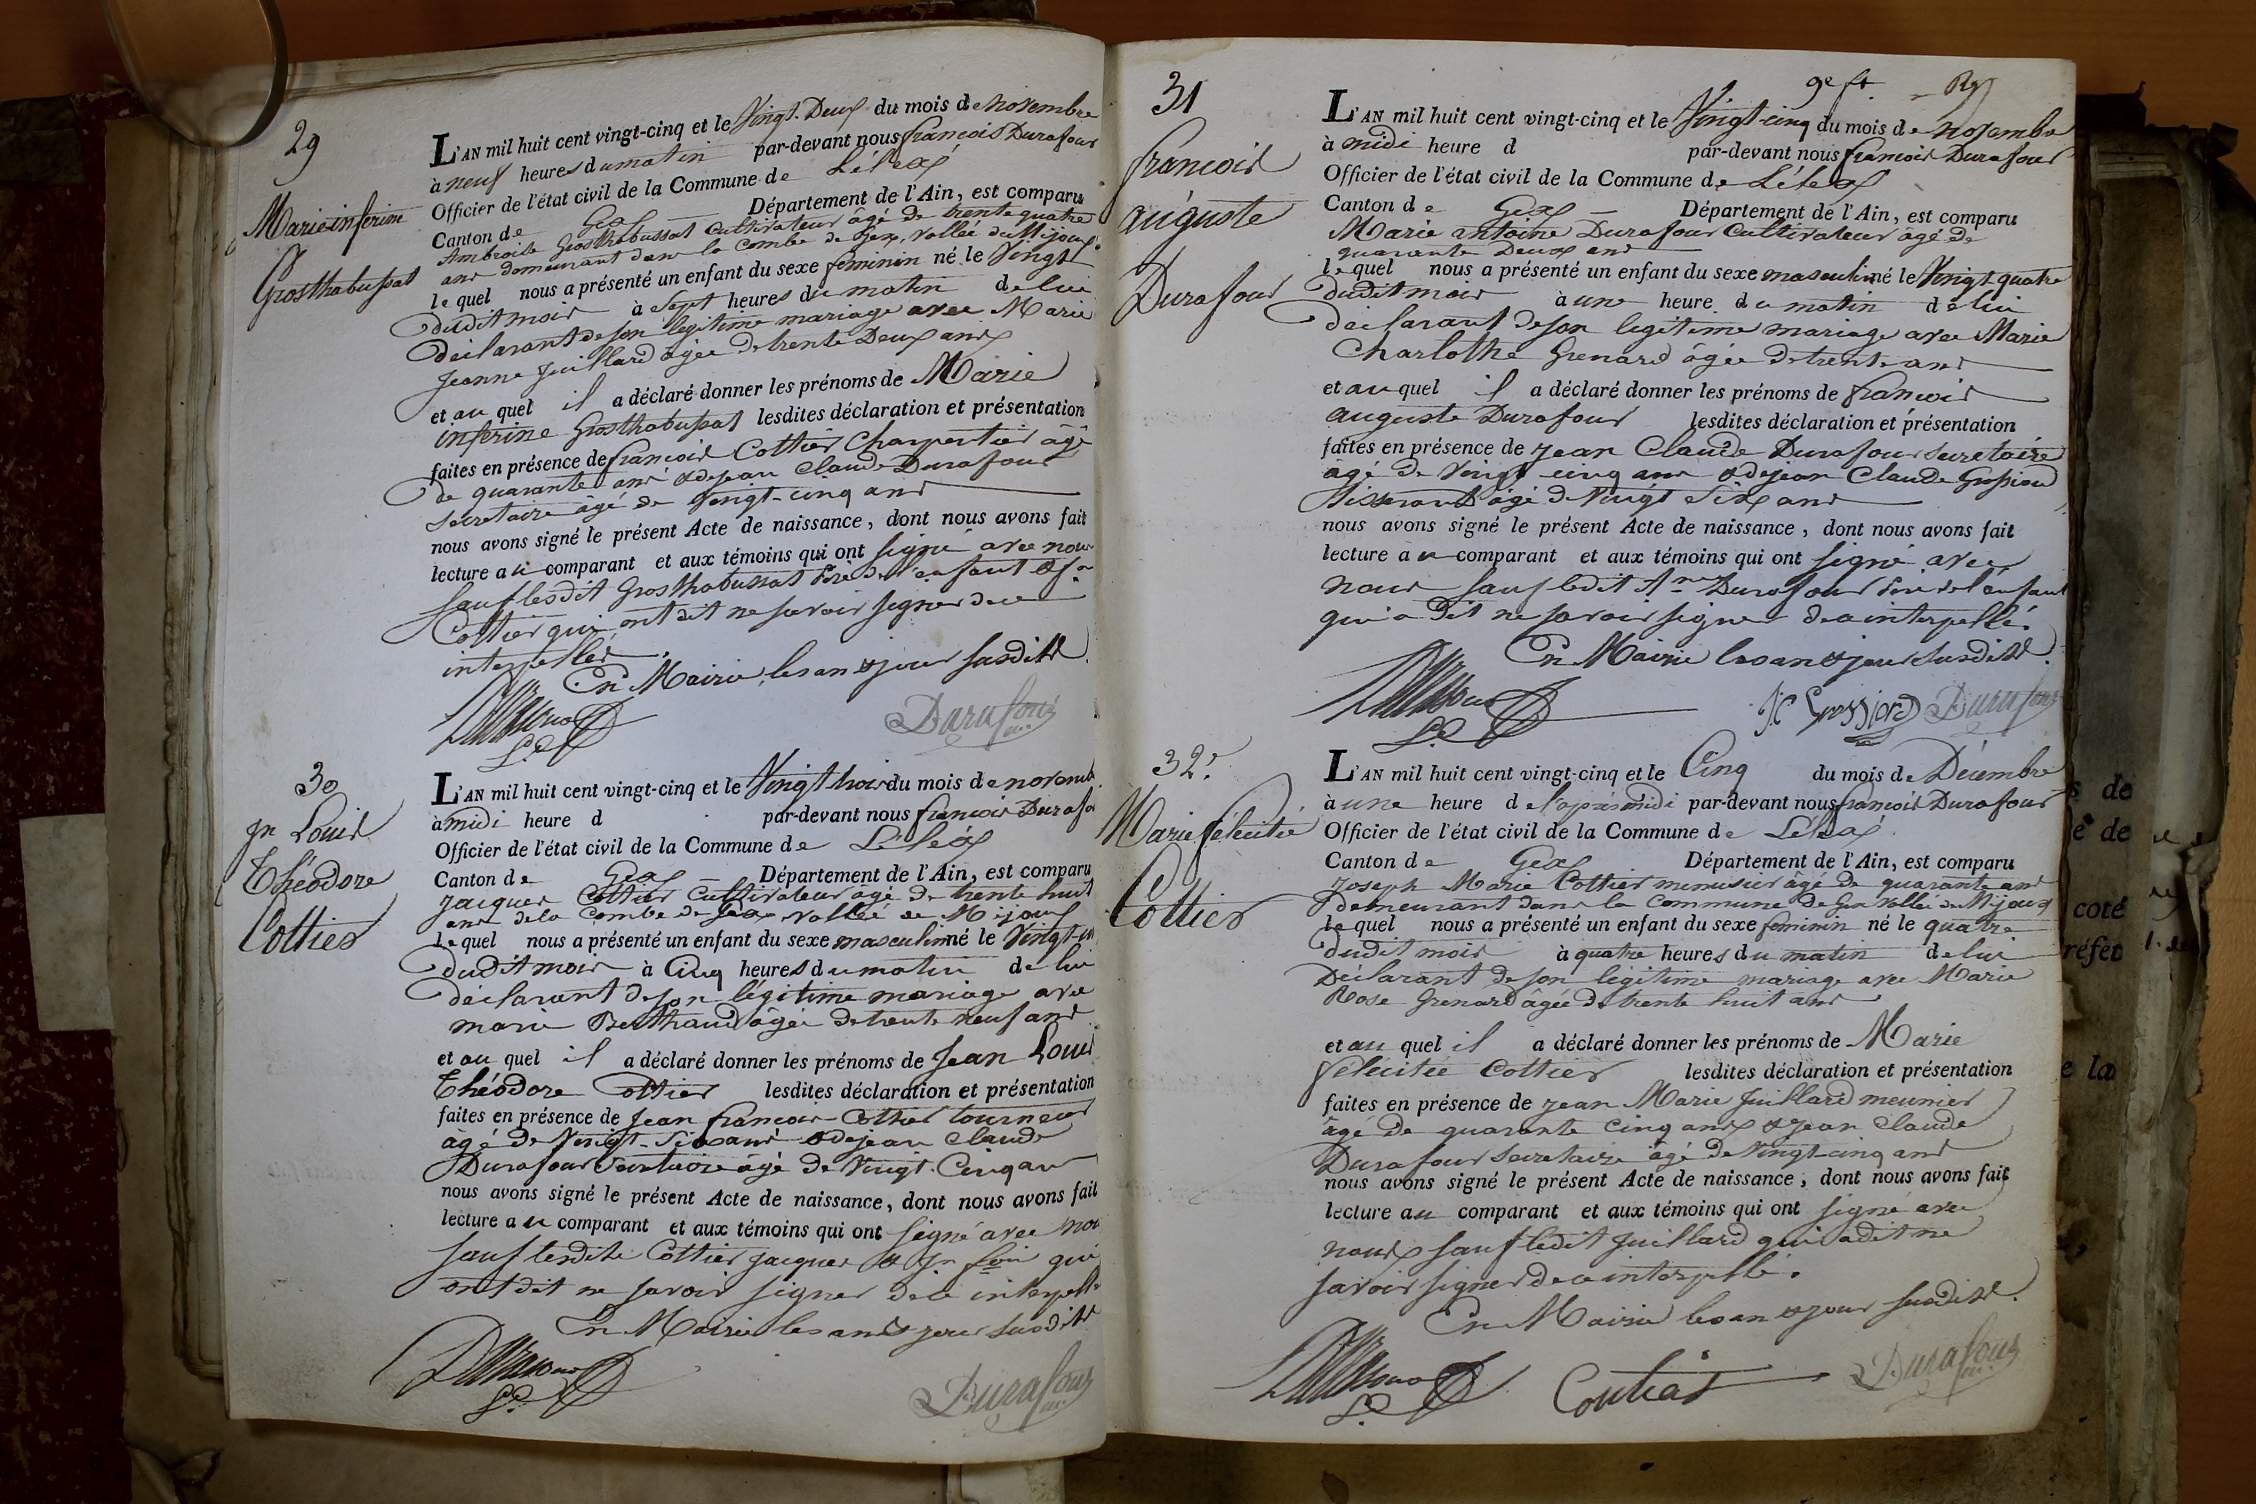 29
Marie inferine
Grosthabussat
L'AN mil huit cent vingt-cinq et le Vingt-Deux du mois de novembre
à neuf heures du matin par-devant nous francois Durafour
Officier de l'état civil de la Commune de Lélex
Canton de Gex Département de l'Ain, est comparu
Ambroise Grosthabussat Cultivateur âgé de trente quatre
ans demeurant dans la Combe de Gex, Vallée du Mijoux
lequel nous a présenté un enfant du sexe feminin né le Vingt
dudit mois à sept heures du matin de lui
déclarant de son légitime mariage avec Marie
Jeanne Juillard âgée de trente Deux ans
et au quel il a déclaré donner les prénoms de Marie
inferine Grosthabussat lesdites déclaration et présentation
faites en présence de francois Cottier Charpentier âgé
de quarante ans & de jean Claude Durafour
Secretaire âgé de Vingt-cinq ans
nous avons signé le présent Acte de naissance, dont nous avons fait
lecture au comparant et aux témoins qui ont signé avec nous
sauf lesdit Grosthabussat Père de l'enfant &
Cottier qui ont dit ne savoir signer de ce
interpellés.
En Mairie les an & jour susdits.
Durafour
30
jn Louis
Théodore
Cottier
L'AN mil huit cent vingt-cinq et le Vingt trois du mois de novemb
à midi heure d par-devant nous francois Durafo
Officier de l'état civil de la Commune de Lélex
Canton de Gex Département de l'Ain, est comparu
Jacques Cottier Cultivateur âgé de trente huit
ans de la Combe de Gex Vallée de Mijoux
lequel nous a présenté un enfant du sexe masculin né le Vingt-un
dudit mois à Cinq heures du matin de lui
déclarant de son légitime mariage avec
marie Berthaud âgée de trente neuf ans
et au quel il a déclaré donner les prénoms de Jean Louis
Théodore Cottier lesdites déclaration et présentation
faites en présence de Jean francois Cottier tourneur
âgé de Vingt-Six ans & de jean Claude
Durafour Secretaire âgé de Vingt-Cinq ans
nous avons signé le présent Acte de naissance, dont nous avons fait
lecture au comparant et aux témoins qui ont signé avec nou
sauf lesdits Cottier jacques & jn fois qui
ont dit ne savoir signer de ce interpell
En Mairie les an & jour susdits
Durafour
31
francois
auguste
Durafour
L'AN mil huit cent vingt-cinq et le Vingt-cinq du mois de novembre
à midi heure d par-devant nous francois Durafour
Officier de l'état civil de la Commune de Lélex
Canton de Gex Département de l'Ain, est comparu
Marie antoine Durafour Cultivateur âgé de
quarante Deux ans
lequel nous a présenté un enfant du sexe masculin né le Vingt-quatre
dudit mois à une heure du matin de lui
déclarant de son légitime mariage avec Marie
Charlothe Grenard âgée de trente ans
et au quel il a déclaré donner les prénoms de francois
auguste Durafour lesdites déclaration et présentation
faites en présence de jean Claude Durafour Secretaire
âgé de Vingt cinq ans & de jean Claude Grossiord
Tisserand âgé de Vingt Six ans
nous avons signé le présent Acte de naissance, dont nous avons fait
lecture au comparant et aux témoins qui ont signé avec
nous sauf ledit Durafour Père de l'enfant
qui a dit ne savoir signer de ce interpellé.
En Mairie les an & jour susdits.
JC Grossiord Durafour
32e
Marie félicitée
Cottier
L'AN mil huit cent vingt-cinq et le Cinq du mois de Décembre
à une heure de l'après midi par-devant nous francois Durafour
Officier de l'état civil de la Commune de Lélex
Canton de Gex Département de l'Ain, est comparu
Joseph Marie Cottier menusier âgé de quarante ans
demeurant dans la Commune de Gex Vallée du Mijoux
lequel nous a présenté un enfant du sexe feminin né le quatre
dudit mois à quatre heures du matin de lui
Déclarant de son légitime mariage avec Marie
Rose Grenard âgée de trente huit ans
et au quel il a déclaré donner les prénoms de Marie
félicitée Cottier lesdites déclaration et présentation
faites en présence de jean Marie Juillard meunier
âgé de quarante cinq ans & jean Claude
Durafour Secretaire âgé de Vingt-cinq ans
nous avons signé le présent Acte de naissance, dont nous avons fait
lecture au comparant et aux témoins qui ont signé avec
nous sauf ledit Juillard qui a dit ne
savoir signer de ce interpellé.
En Mairie les an & jour susdits.
Durafour
s de
e de
coté
réfet
e la